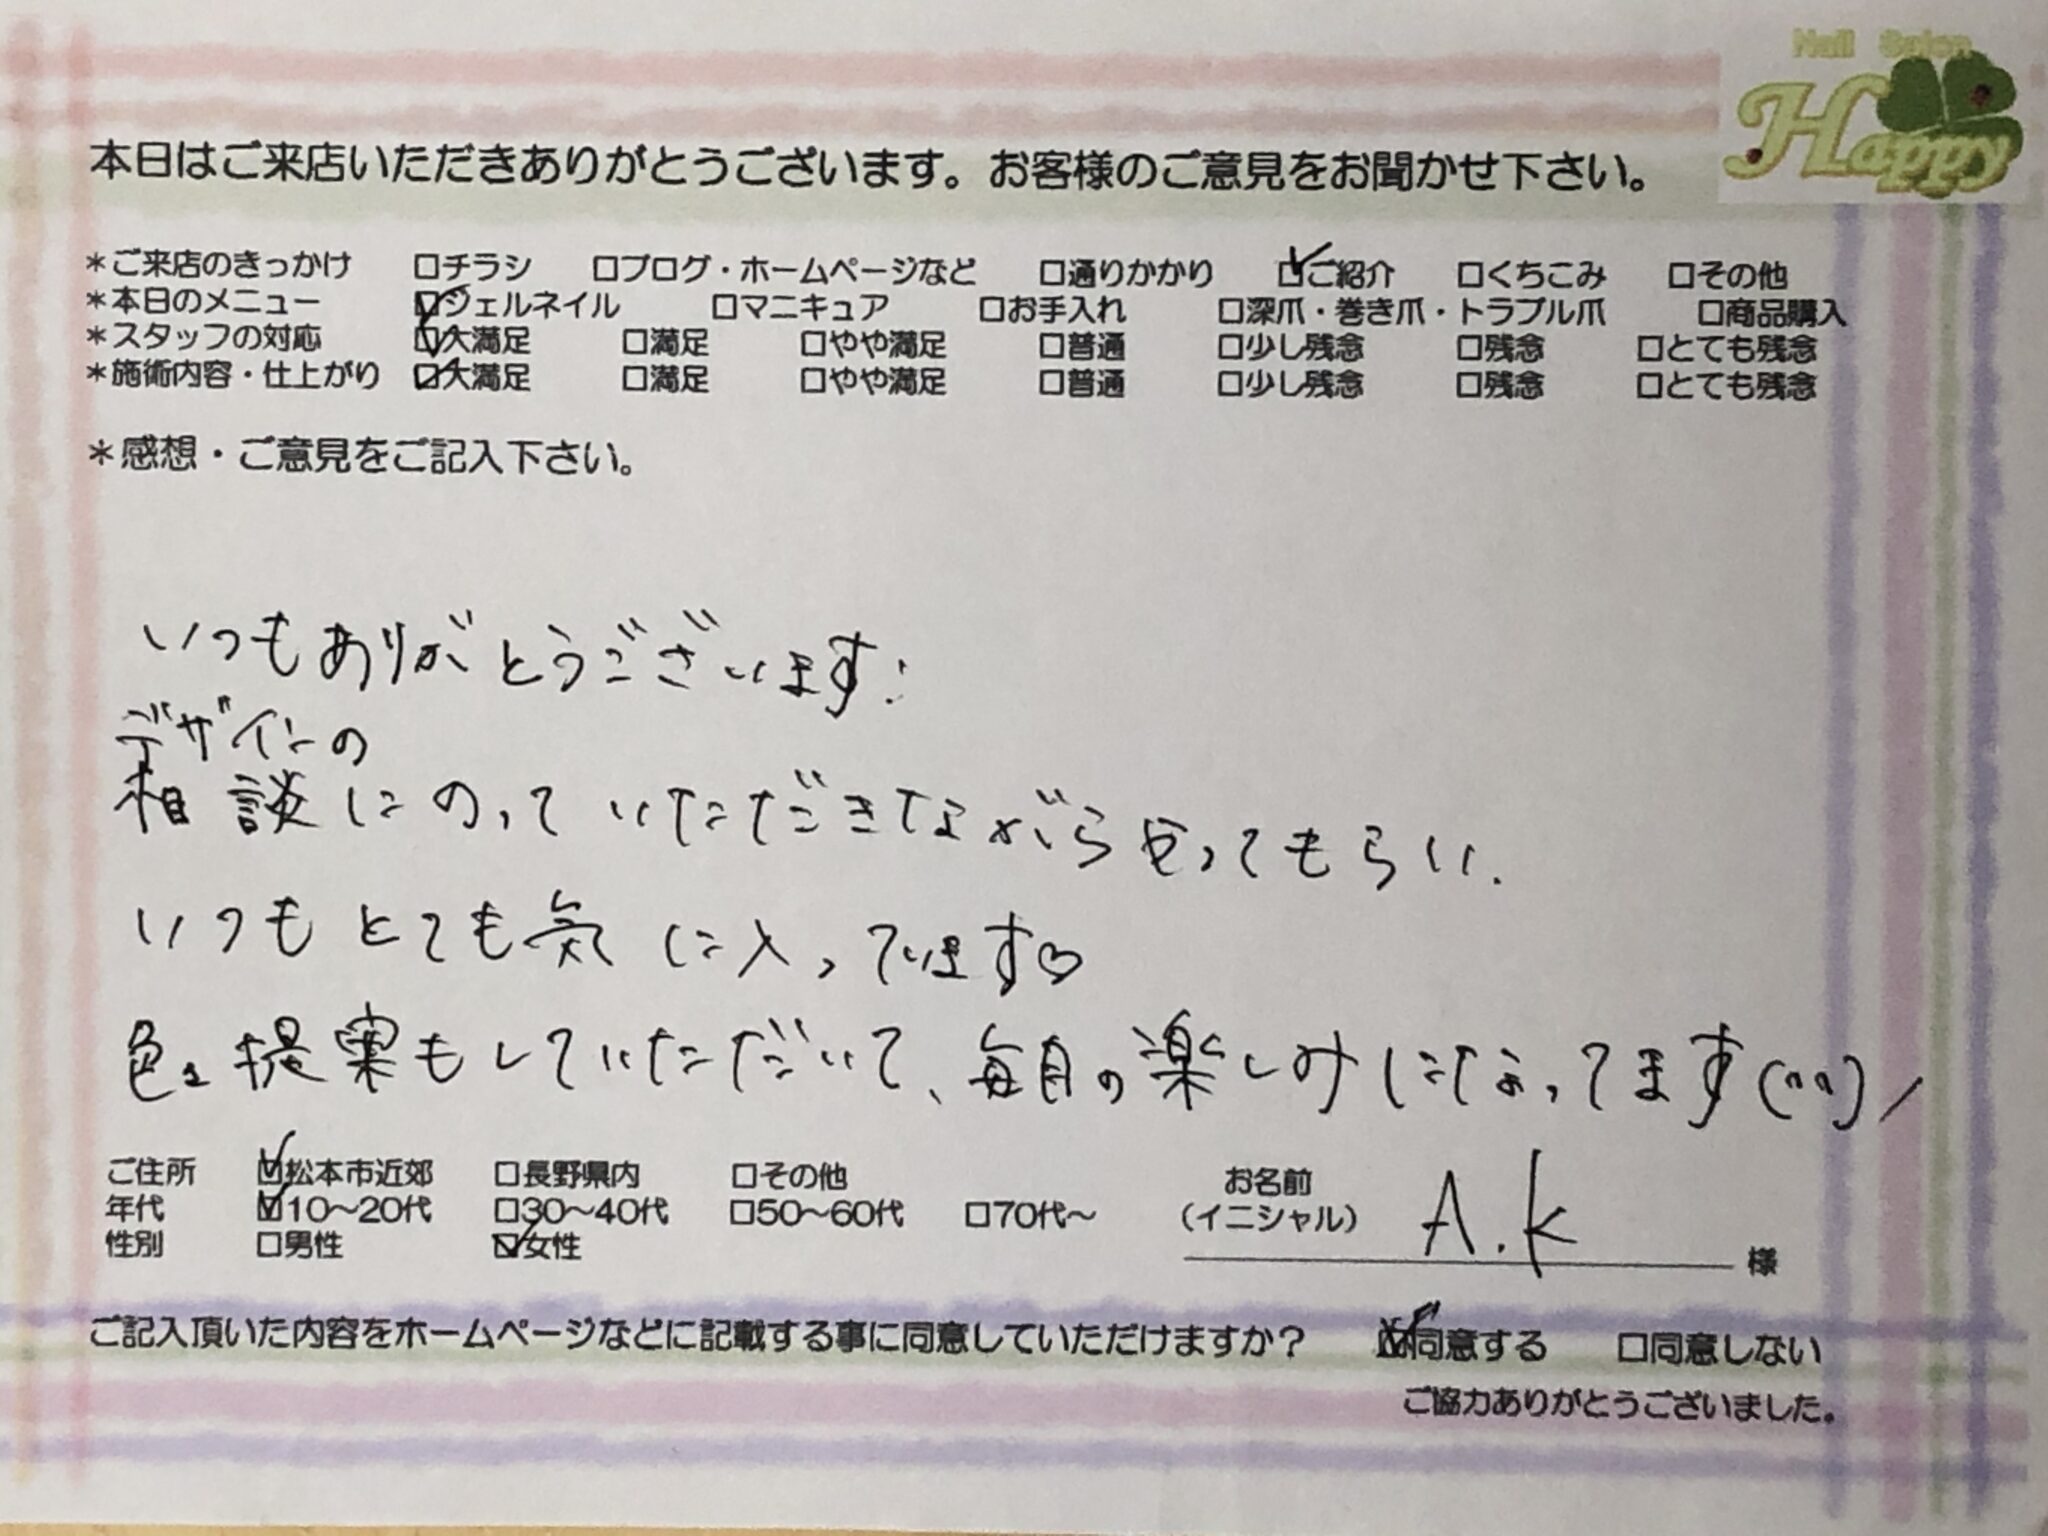 Nail Salon
Happy
本日はご来店いただきありがとうございます。お客様のご意見をお聞かせ下さい。
＊ご来店のきっかけ ☐チラシ ☐ブログ・ホームページなど ☐通りかかり ☑ご紹介 ☐くちこみ ☐その他
＊本日のメニュー ☑ジェルネイル ☐マニキュア ☐お手入れ ☐深爪・巻き爪・トラブル爪 ☐商品購入
＊スタッフの対応 ☑大満足 ☐満足 ☐やや満足 ☐普通 ☐少し残念 ☐残念 ☐とても残念
＊施術内容・仕上がり ☑大満足 ☐満足 ☐やや満足 ☐普通 ☐少し残念 ☐残念 ☐とても残念
＊感想・ご意見をご記入下さい。
いつもありがとうございます!
デザインの
相談にのっていただきながらやってもらい、
いつもとても気に入っています♡
色々提案もしていただいて、毎月の楽しみになってます(^^)/
ご住所 ☑松本市近郊 ☐長野県内 ☐その他
年代 ☑10～20代 ☐30～40代 ☐50～60代 ☐70代～
性別 ☐男性 ☑女性
お名前
(イニシャル) A.K 様
ご記入頂いた内容をホームページなどに記載する事に同意していただけますか？ ☑同意する ☐同意しない
ご協力ありがとうございました。